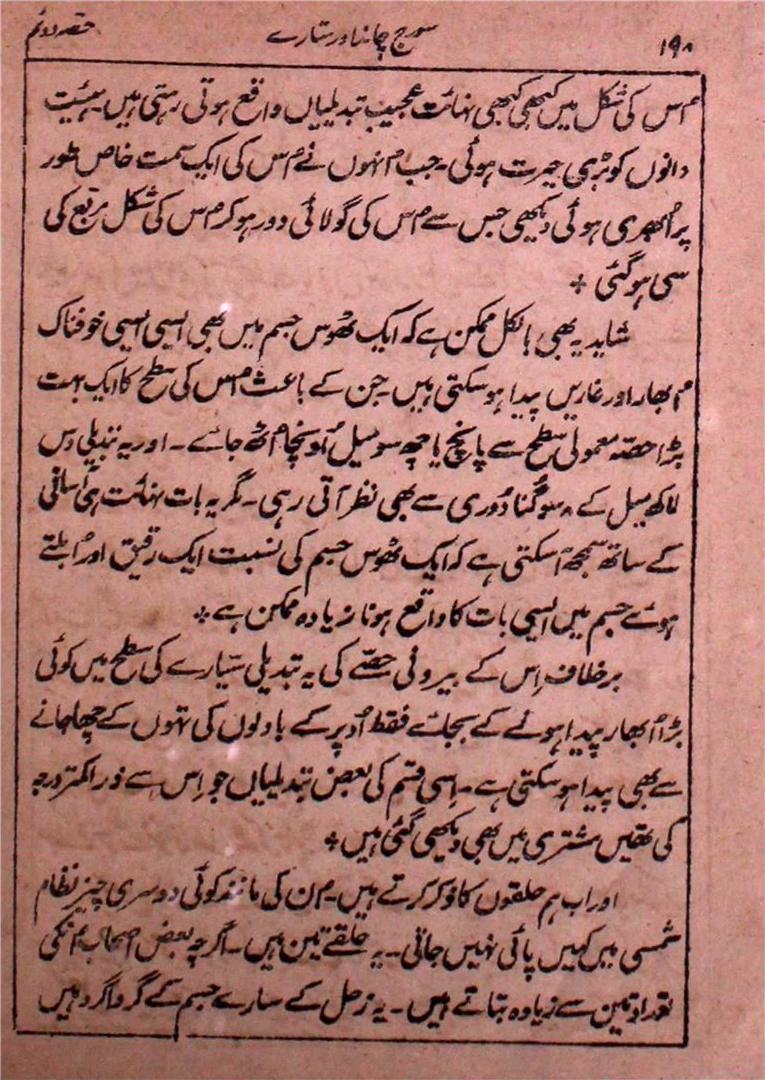 ۱۹۸ سورج چاند اور ستارے حصہ دوئم
اُس کی شکل میں کبھی کبھی نہائت عجیب تبدیلیاں واقع ہوتی رہتی ہیں۔ ہیئت
دانوں کو بڑی حیرت ہوئی۔ جب اُنہوں نے اُس کی ایک سمت خاص طور
پر اُبھری ہوئی دیکھی جس سے اُس کی گولائی دور ہو کر اُس کی شکل مربع کی
سی ہو گئی ٭
شاید یہ بھی بالکل ممکن ہے کہ ایک ٹھوس جسم میں بھی ایسی ایسی خوفناک
اُبھار اور غاریں پیدا ہو سکتی ہیں۔ جن کے باعث اُس کی سطح کا ایک بہت
بڑا حصہ معمولی سطح سے پانچ یا چھ سو میل اُونچا اُٹھ جائے۔ اور یہ تبدیلی دس
لاکھ میل کے ۸ سو گنا دُوری سے بھی نظر آتی رہی۔ مگر یہ بات نہائت ہی آسانی
کے ساتھ سمجھ آ سکتی ہے کہ ایک ٹھوس جسم کی نسبت ایک رقیق اور اُبلتے
ہوئے جسم میں ایسی بات کا واقع ہونا زیادہ ممکن ہے ٭
برخلاف اِس کے بیرونی حصّے کی یہ تبدیلی سیّارے کی سطح میں کوئی
بڑا اُبھار پیدا ہونے کے بجائے فقط اُوپر کے بادلوں کی تہوں کے چھا جانے
سے بھی پیدا ہو سکتی ہے۔ اِسی قسم کی بعض تبدیلیاں جو اِس سے ذرا کمتر درجہ
کی تھیں مشتری میں بھی دیکھی گئی ہیں ٭
اور اب ہم حلقوں کا ذکر کرتے ہیں۔ اُن کی مانند کوئی دوسری چیز نظام
شمسی میں کہیں پائی نہیں جاتی۔ یہ حلقے تین ہیں۔ اگرچہ بعض اصحاب اُنکی
تعداد تین سے زیادہ بتاتے ہیں۔ یہ زحل کے سارے جسم کے گرداگرد ہیں